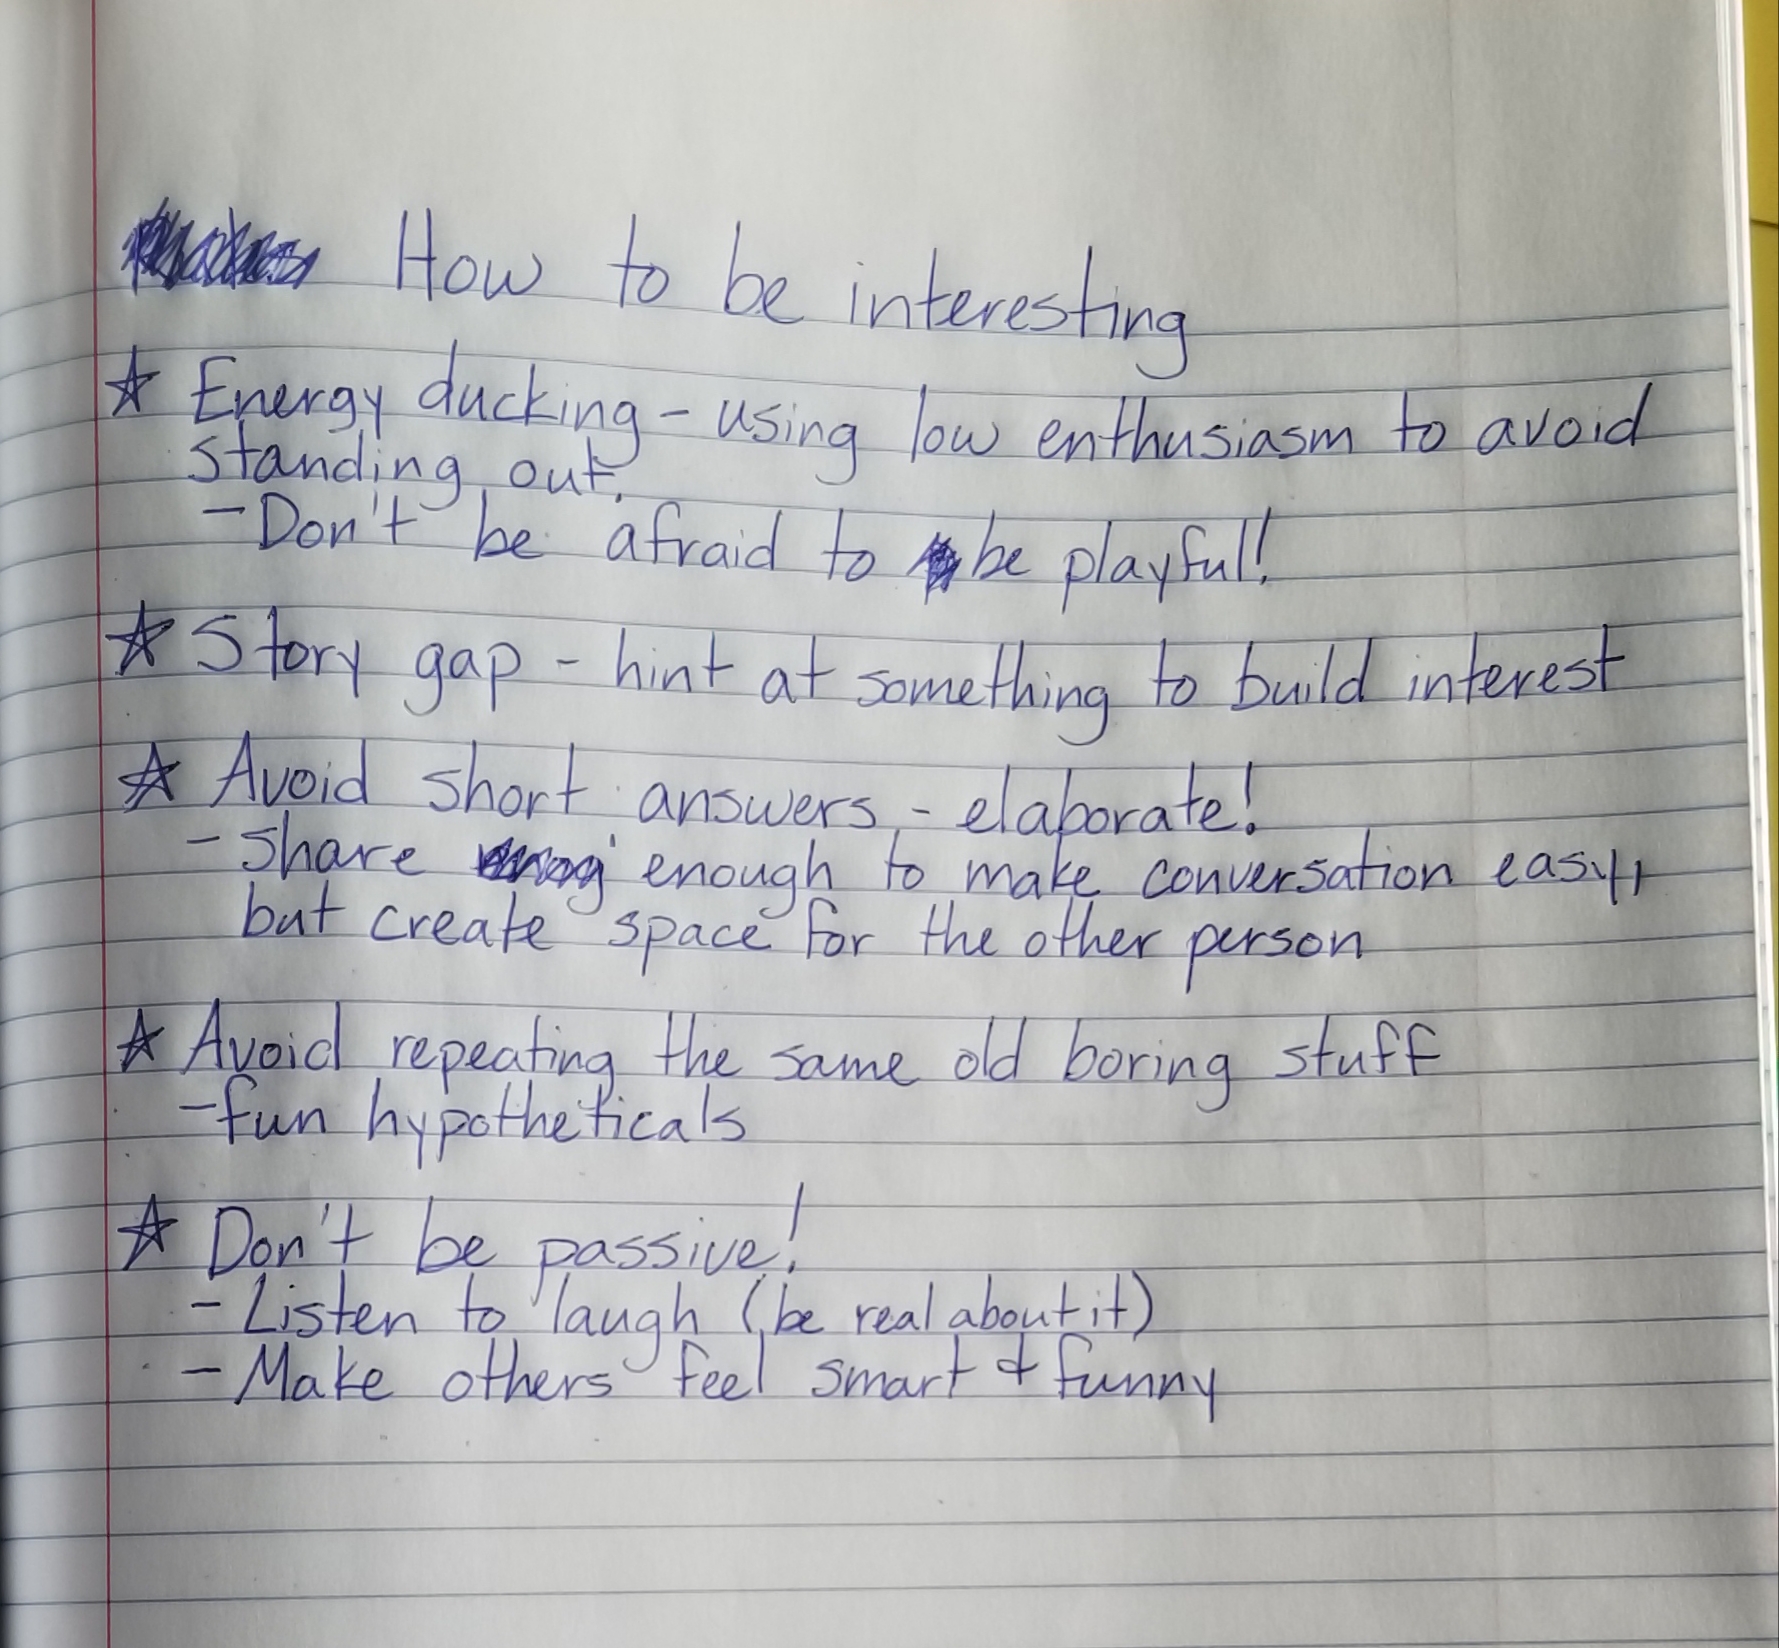 How to be interesting
☆ Energy ducking - using low enthusiasm to avoid
standing out.
- Don't be afraid to be playful!
☆ Story gap - hint at something to build interest
☆ Avoid short answers - elaborate!
- Share enough to make conversation easy,
but create space for the other person
☆ Avoid repeating the same old boring stuff
- fun hypotheticals
☆ Don't be passive!
- Listen to laugh (be real about it)
- Make others feel smart & funny